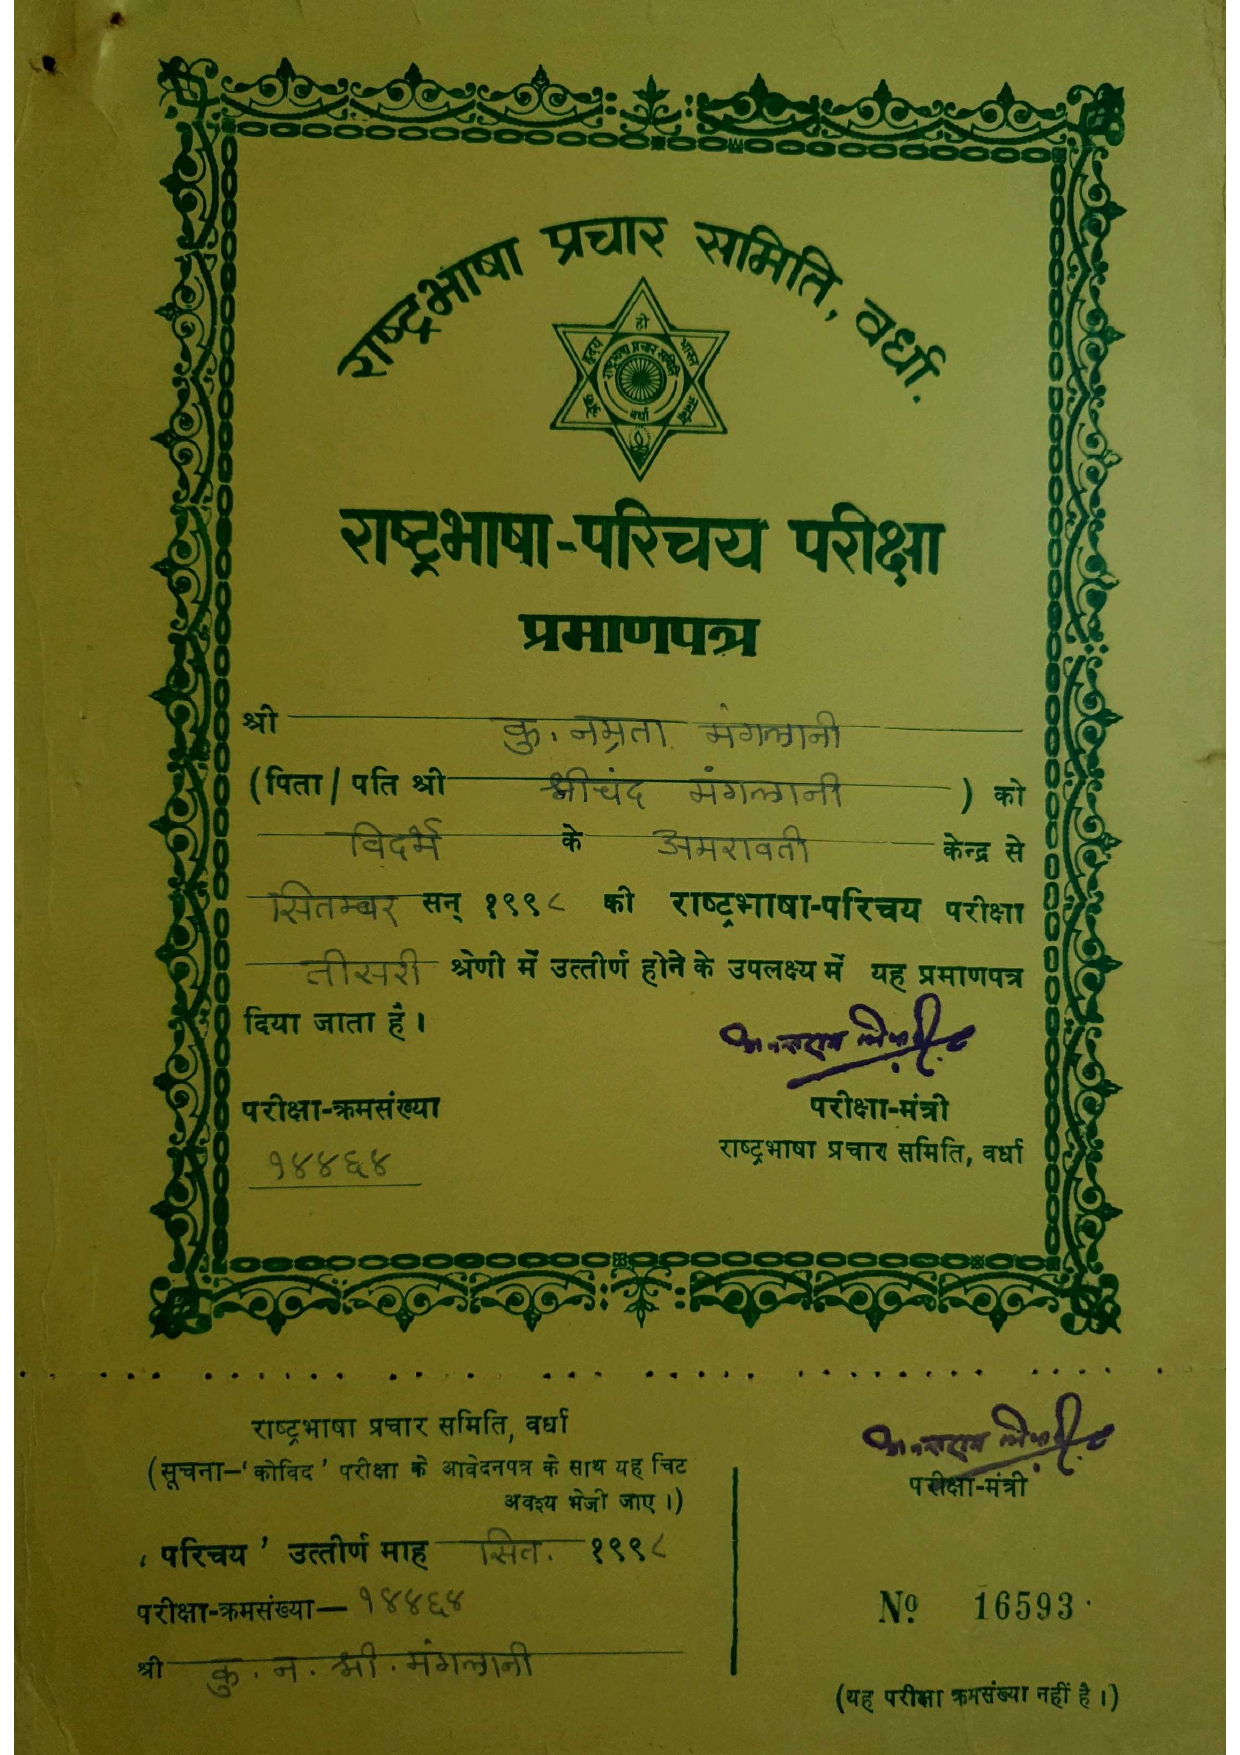 राष्ट्रभाषा प्रचार समिति, वर्धा.
हो
हृदय
भारत
राष्ट्रभाषा प्रचार समिति
वर्धा
राष्ट्रभाषा-परिचय परीक्षा
प्रमाणपत्र
श्री कु. नम्रता मंगलानी
(पिता/पति श्री श्रीचंद मंगलानी) को
विदर्भ के अमरावती केन्द्र से
सितम्बर सन् १९९८ की राष्ट्रभाषा-परिचय परीक्षा
तीसरी श्रेणी में उत्तीर्ण होने के उपलक्ष्य में यह प्रमाणपत्र
दिया जाता है।
परीक्षा-क्रमसंख्या
परीक्षा-मंत्री
१४४६४
राष्ट्रभाषा प्रचार समिति, वर्धा
राष्ट्रभाषा प्रचार समिति, वर्धा
(सूचना–'कोविद' परीक्षा के आवेदनपत्र के साथ यह चिट
अवश्य भेजी जाए।)
परीक्षा-मंत्री
'परिचय' उत्तीर्ण माह सित. १९९८
परीक्षा-क्रमसंख्या— १४४६४
Nº 16593
श्री कु. न. श्री. मंगलानी
(यह परीक्षा क्रमसंख्या नहीं है।)